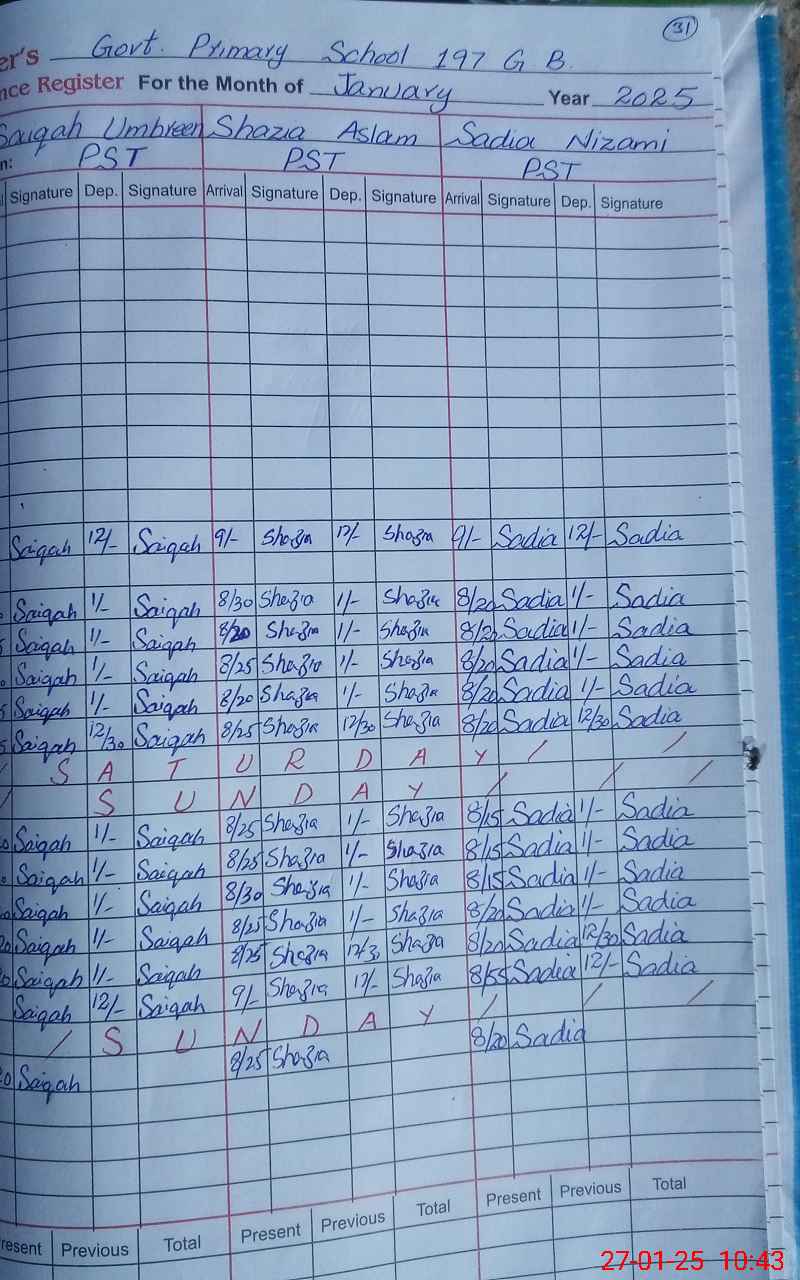 31
er's Govt. Primary School 197 G B.
nce Register For the Month of January Year 2025
Saiqah Umbreen Shazia Aslam Sadia Nizami
n: PST PST PST
Signature Dep. Signature Arrival Signature Dep. Signature Arrival Signature Dep. Signature
Saiqah 12/- Saiqah 9/- Shazia 12/- Shazia 9/- Sadia 12/- Sadia
Saiqah 1/- Saiqah 8/30 Shazia 1/- Shazia 8/20 Sadia 1/- Sadia
Saiqah 1/- Saiqah 8/20 Shazia 1/- Shazia 8/20 Sadia 1/- Sadia
Saiqah 1/- Saiqah 8/25 Shazia 1/- Shazia 8/20 Sadia 1/- Sadia
Saiqah 1/- Saiqah 8/20 Shazia 1/- Shazia 8/20 Sadia 1/- Sadia
Saiqah 12/30 Saiqah 8/25 Shazia 12/30 Shazia 8/20 Sadia 12/30 Sadia
/ S A T U R D A Y / /
/ S U N D A Y / / /
Saiqah 1/- Saiqah 8/25 Shazia 1/- Shazia 8/15 Sadia 1/- Sadia
Saiqah 1/- Saiqah 8/25 Shazia 1/- Shazia 8/15 Sadia 1/- Sadia
Saiqah 1/- Saiqah 8/30 Shazia 1/- Shazia 8/15 Sadia 1/- Sadia
Saiqah 1/- Saiqah 8/25 Shazia 1/- Shazia 8/20 Sadia 1/- Sadia
Saiqah 1/- Saiqah 8/25 Shazia 12/3 Shazia 8/20 Sadia 12/30 Sadia
Saiqah 12/- Saiqah 9/- Shazia 12/- Shazia 8/55 Sadia 12/- Sadia
/ S U N D A Y / / /
Saiqah 8/25 Shazia 8/20 Sadia
resent Previous Total Present Previous Total Present Previous Total
27-01-25 10:43